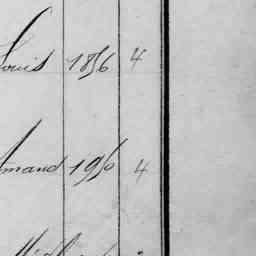 Louis 1856 4
Amand 1956 4